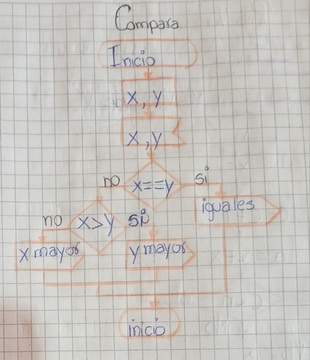 Compara
Inicio
x, y
x, y
no x==y si
iguales
no x>y si
x mayor y mayor
inicio